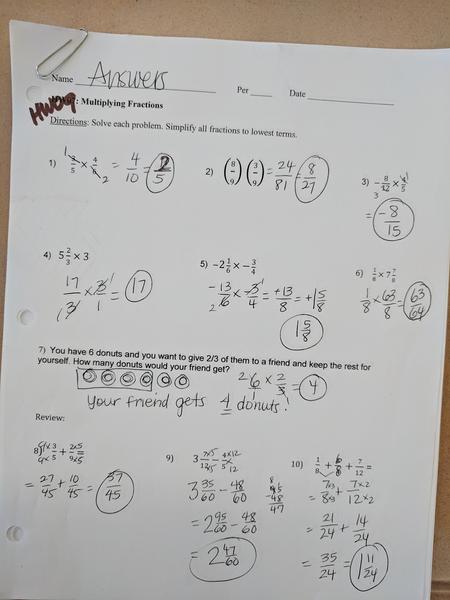 Name Answers Per ____ Date ____
HW09: Multiplying Fractions
Directions: Solve each problem. Simplify all fractions to lowest terms.
1) 3/5 × 4/6 = 4/10 = 2/5
1 2
2) (8/9)(3/9) = 24/81 = 8/27
3) -8/12 × 4/5
3
= -8/15
4) 5 2/3 × 3
17/3 × 3/1 = 17
1 1
5) -2 1/6 × -3/4
-13/6 × -3/4 = +13/8 = +1 5/8
2 1
1 5/8
6) 1/8 × 7 7/8
1/8 × 63/8 = 63/64
7) You have 6 donuts and you want to give 2/3 of them to a friend and keep the rest for
yourself. How many donuts would your friend get?
2 6 × 2/3 = 4
1
Your friend gets 4 donuts!
Review:
8) 9×3/9×5 + 2×5/9×5
= 27/45 + 10/45 = 37/45
9) 3 7×5/12×5 - 4×12/5×12
3 35/60 - 48/60
= 2 95/60 - 48/60
= 2 47/60
95
-48
47
10) 1/8 + 6/8 + 7/12 =
= 7×3/8×3 + 7×2/12×2
= 21/24 + 14/24
= 35/24 = 1 11/24